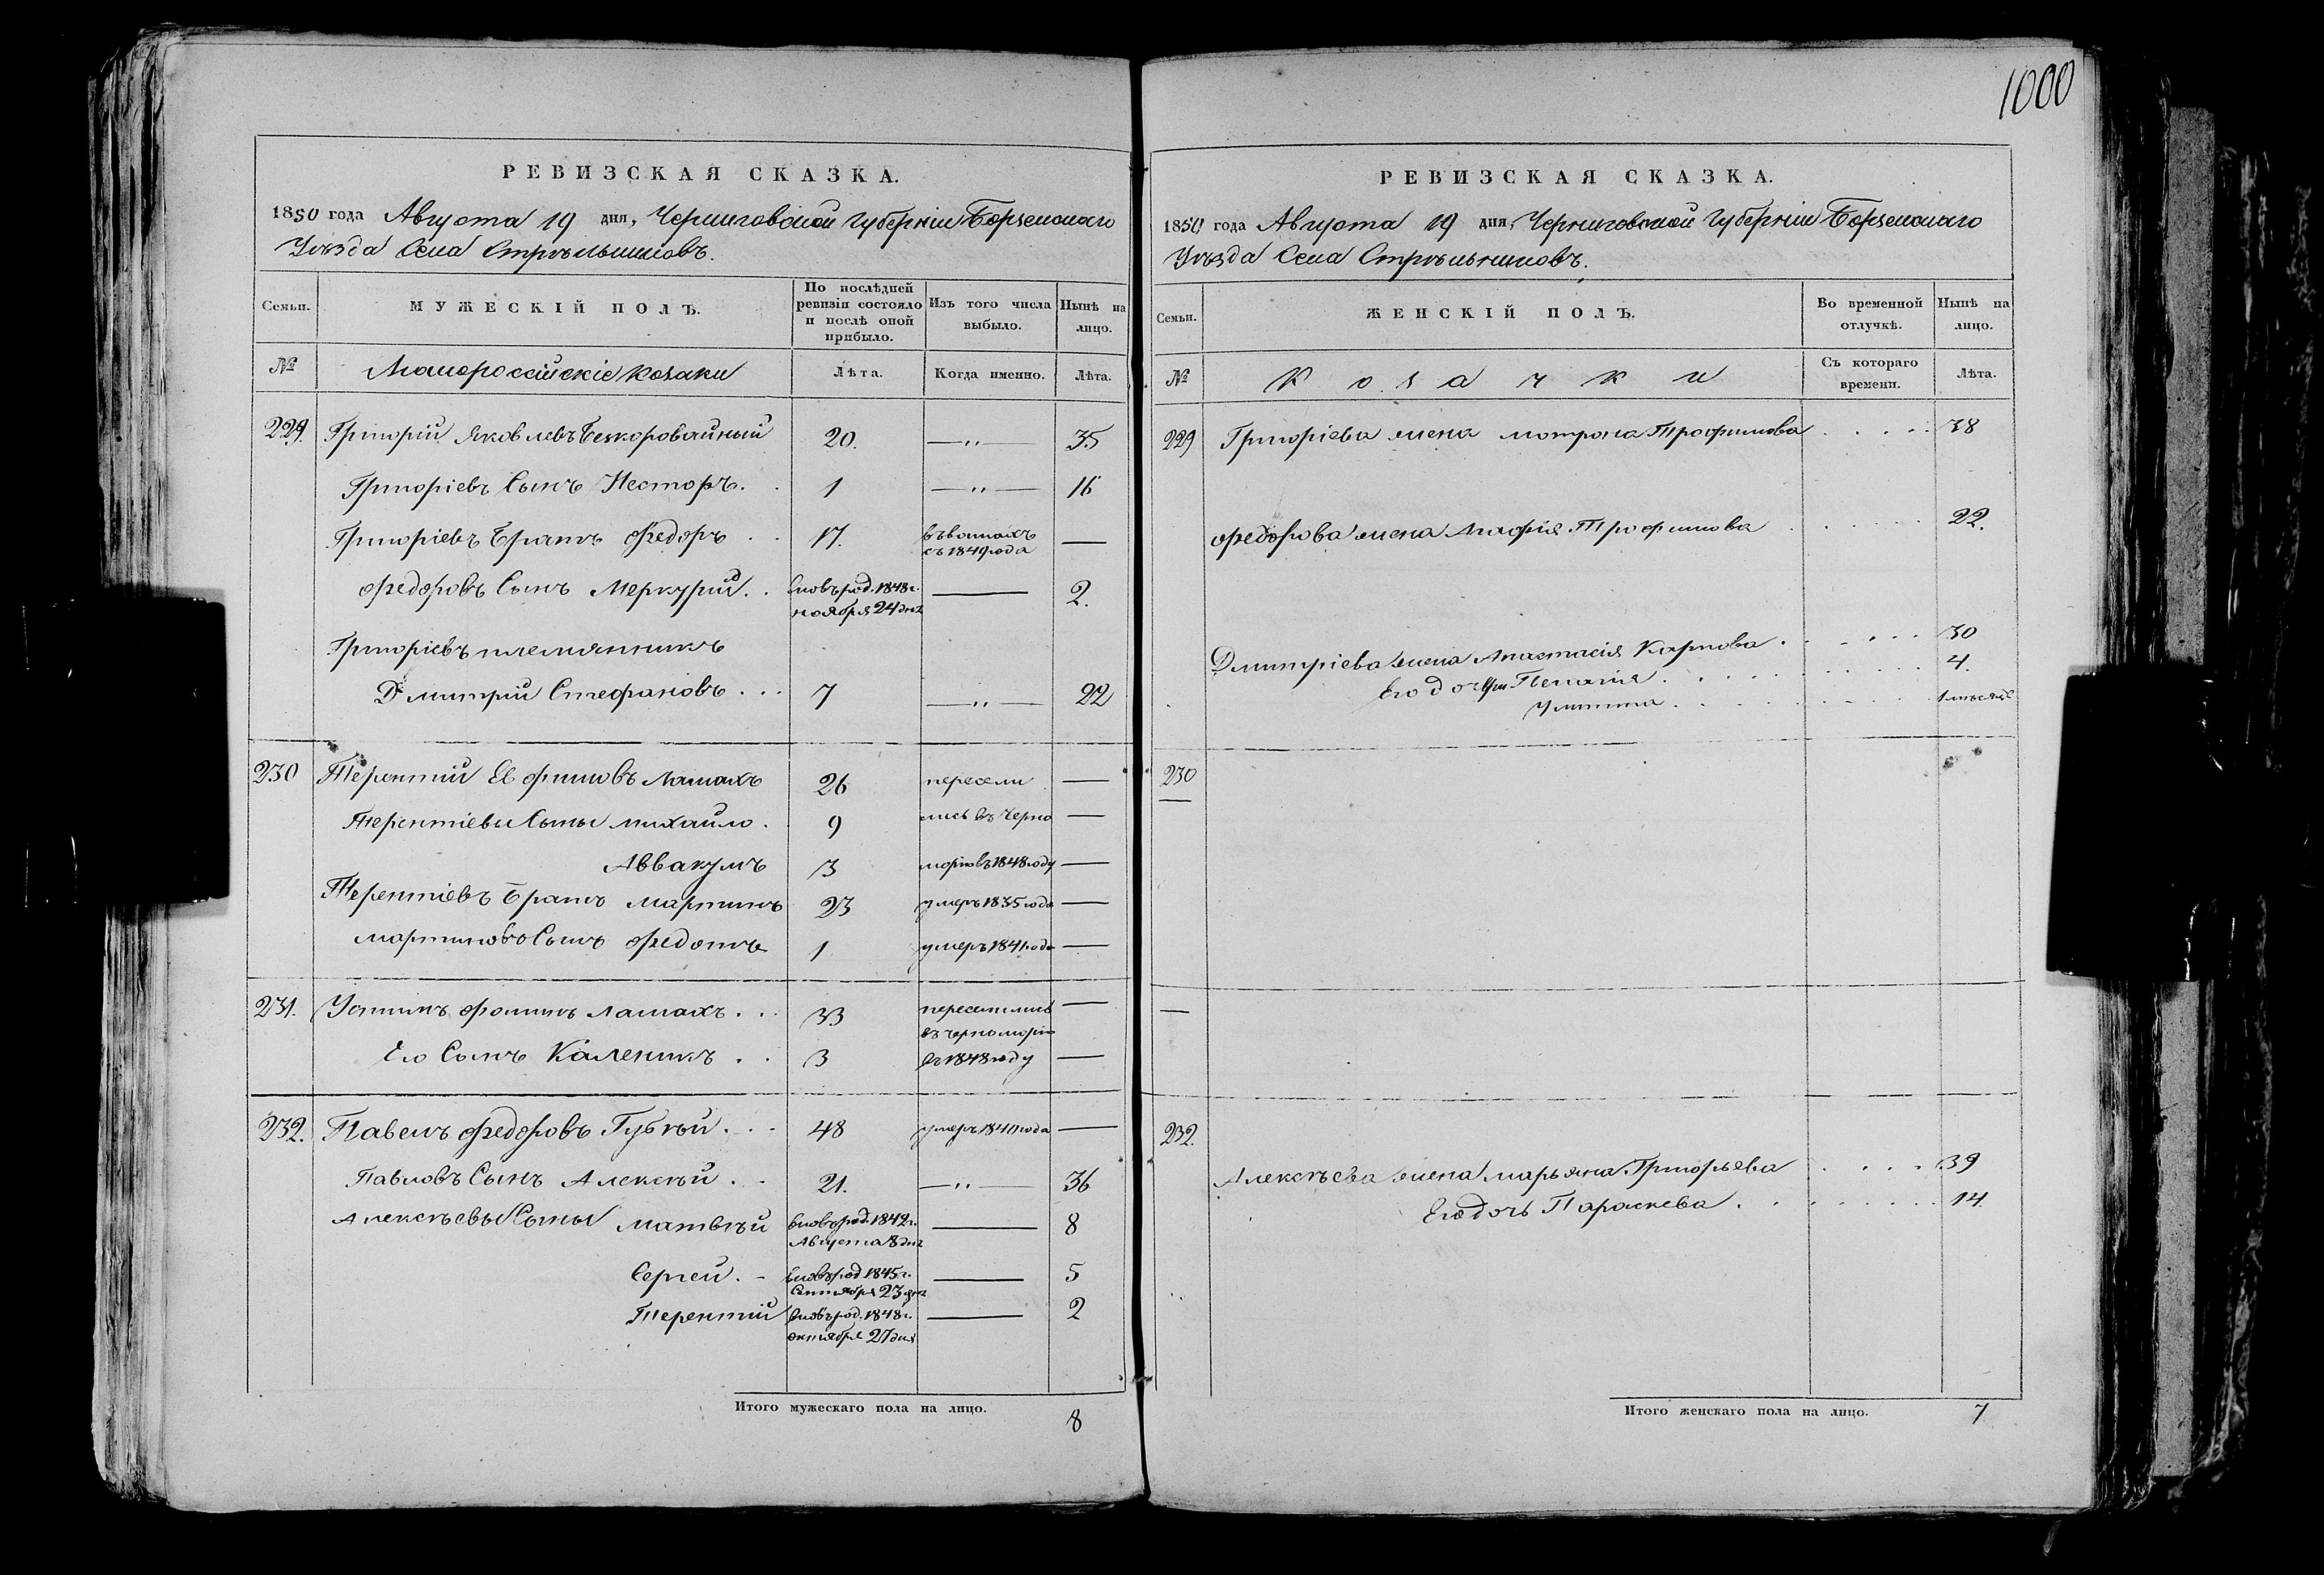 1000
РЕВИЗСКАЯ СКАЗКА.
1850 года Августа 19 дня, Черниговской Губерніи Борзенскаго
Уѣзда Села Стрѣльниковъ.
Семьи. МУЖЕСКІЙ ПОЛЪ. По послѣдней ревизіи состояло и послѣ оной прибыло. Изъ того числа выбыло. Нынѣ на лицо.
№ Малороссійскіе козаки Лѣта. Когда именно. Лѣта.
229. Григорій Яковлевъ Безкоровайный 20. —„— 35
Григоріевъ Сынъ Несторъ. 1 —„— 16
Григоріевъ Братъ Федоръ 17. съ 1849 года —
Федоровъ Сынъ Меркурій. вновь род. 1848 г. ноября 24 дня — 2.
Григоріевъ племянникъ
Дмитрій Стефановъ 7 —„— 22
230 Терентій Евфимовъ Лашахъ 26 пересели —
Терентіевы Сыны Михайло. 9 лись въ Черно —
Аввакумъ 3 морію въ 1848 году —
Терентіевъ Братъ Мартинъ 23 умеръ 1835 года —
Мартиновъ Сынъ Федотъ 1 умеръ 1841 года —
231. Устинъ Фоминъ Лашахъ. 33 переселились —
въ Черноморію
Его Сынъ Каленикъ 3 въ 1848 году —
232. Павелъ Федоровъ Губкій 48 умеръ 1840 года —
Павловъ Сынъ Алексѣй. 21. —„— 36
Алексѣевы Сыны Матвѣй вновь род. 1842 г. Августа 8 дня — 8
Сергей. вновь род 1845 г. Сентября 23 дня — 5
Терентій вновь род. 1848 г. октября 27 дня — 2
Итого мужескаго пола на лицо. 8
РЕВИЗСКАЯ СКАЗКА.
1850 года Августа 19 дня, Черниговской Губерніи Борзенскаго
Уѣзда Села Стрѣльниковъ.
Семьи. ЖЕНСКІЙ ПОЛЪ. Во временной отлучкѣ. Нынѣ на лицо.
№ Козачки Съ котораго времени. Лѣта.
229 Григоріева жена Мотрона Трофимова 38
Федорова жена Агафія Трофимова 22.
Дмитріева жена Анастасія Карпова 30
Его дочери Пелагія 4.
Улитта 1 мѣсяцъ
230
—
—
232.
Алексѣева жена Марьяна Григорьева 39
Его дочь Параскева 14.
Итого женскаго пола на лицо. 7